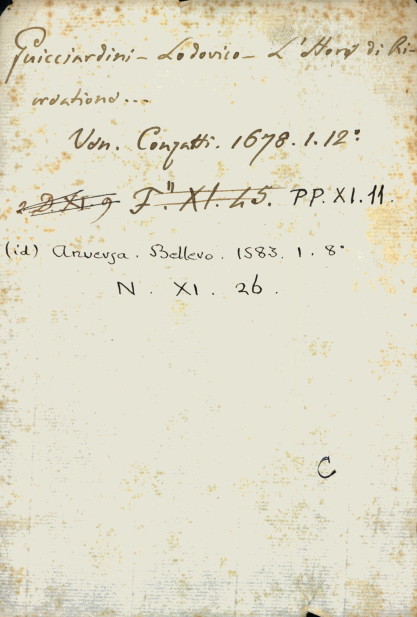 Guicciardini - Lodovico - L'Hore di Ri-
creatione...
Ven. Conzatti. 1678. 1. 12°
2 D. XI 9 F." XI. 45. PP. XI. 11.
(id) Anversa. Bellero. 1583. 1. 8°
N. XI. 26.
C